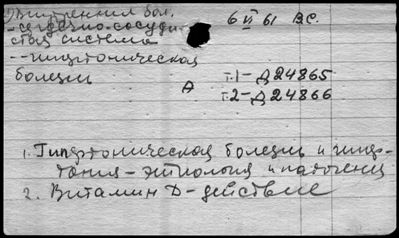 Внутренния бол.
6 II 61 В.С.
- сердечно-сосудистая система
-- гипертоническая болезнь
А
т.1-Д24865
т.2-Д24866
1. Гипертоническая болезнь и гипертония - этиология и патогенез
2. Витамин D - действие